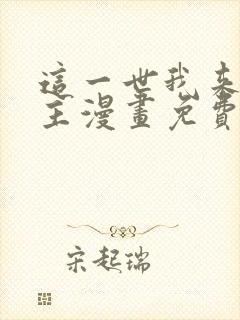 這一世我來
主漫畫免費
宋起瑞